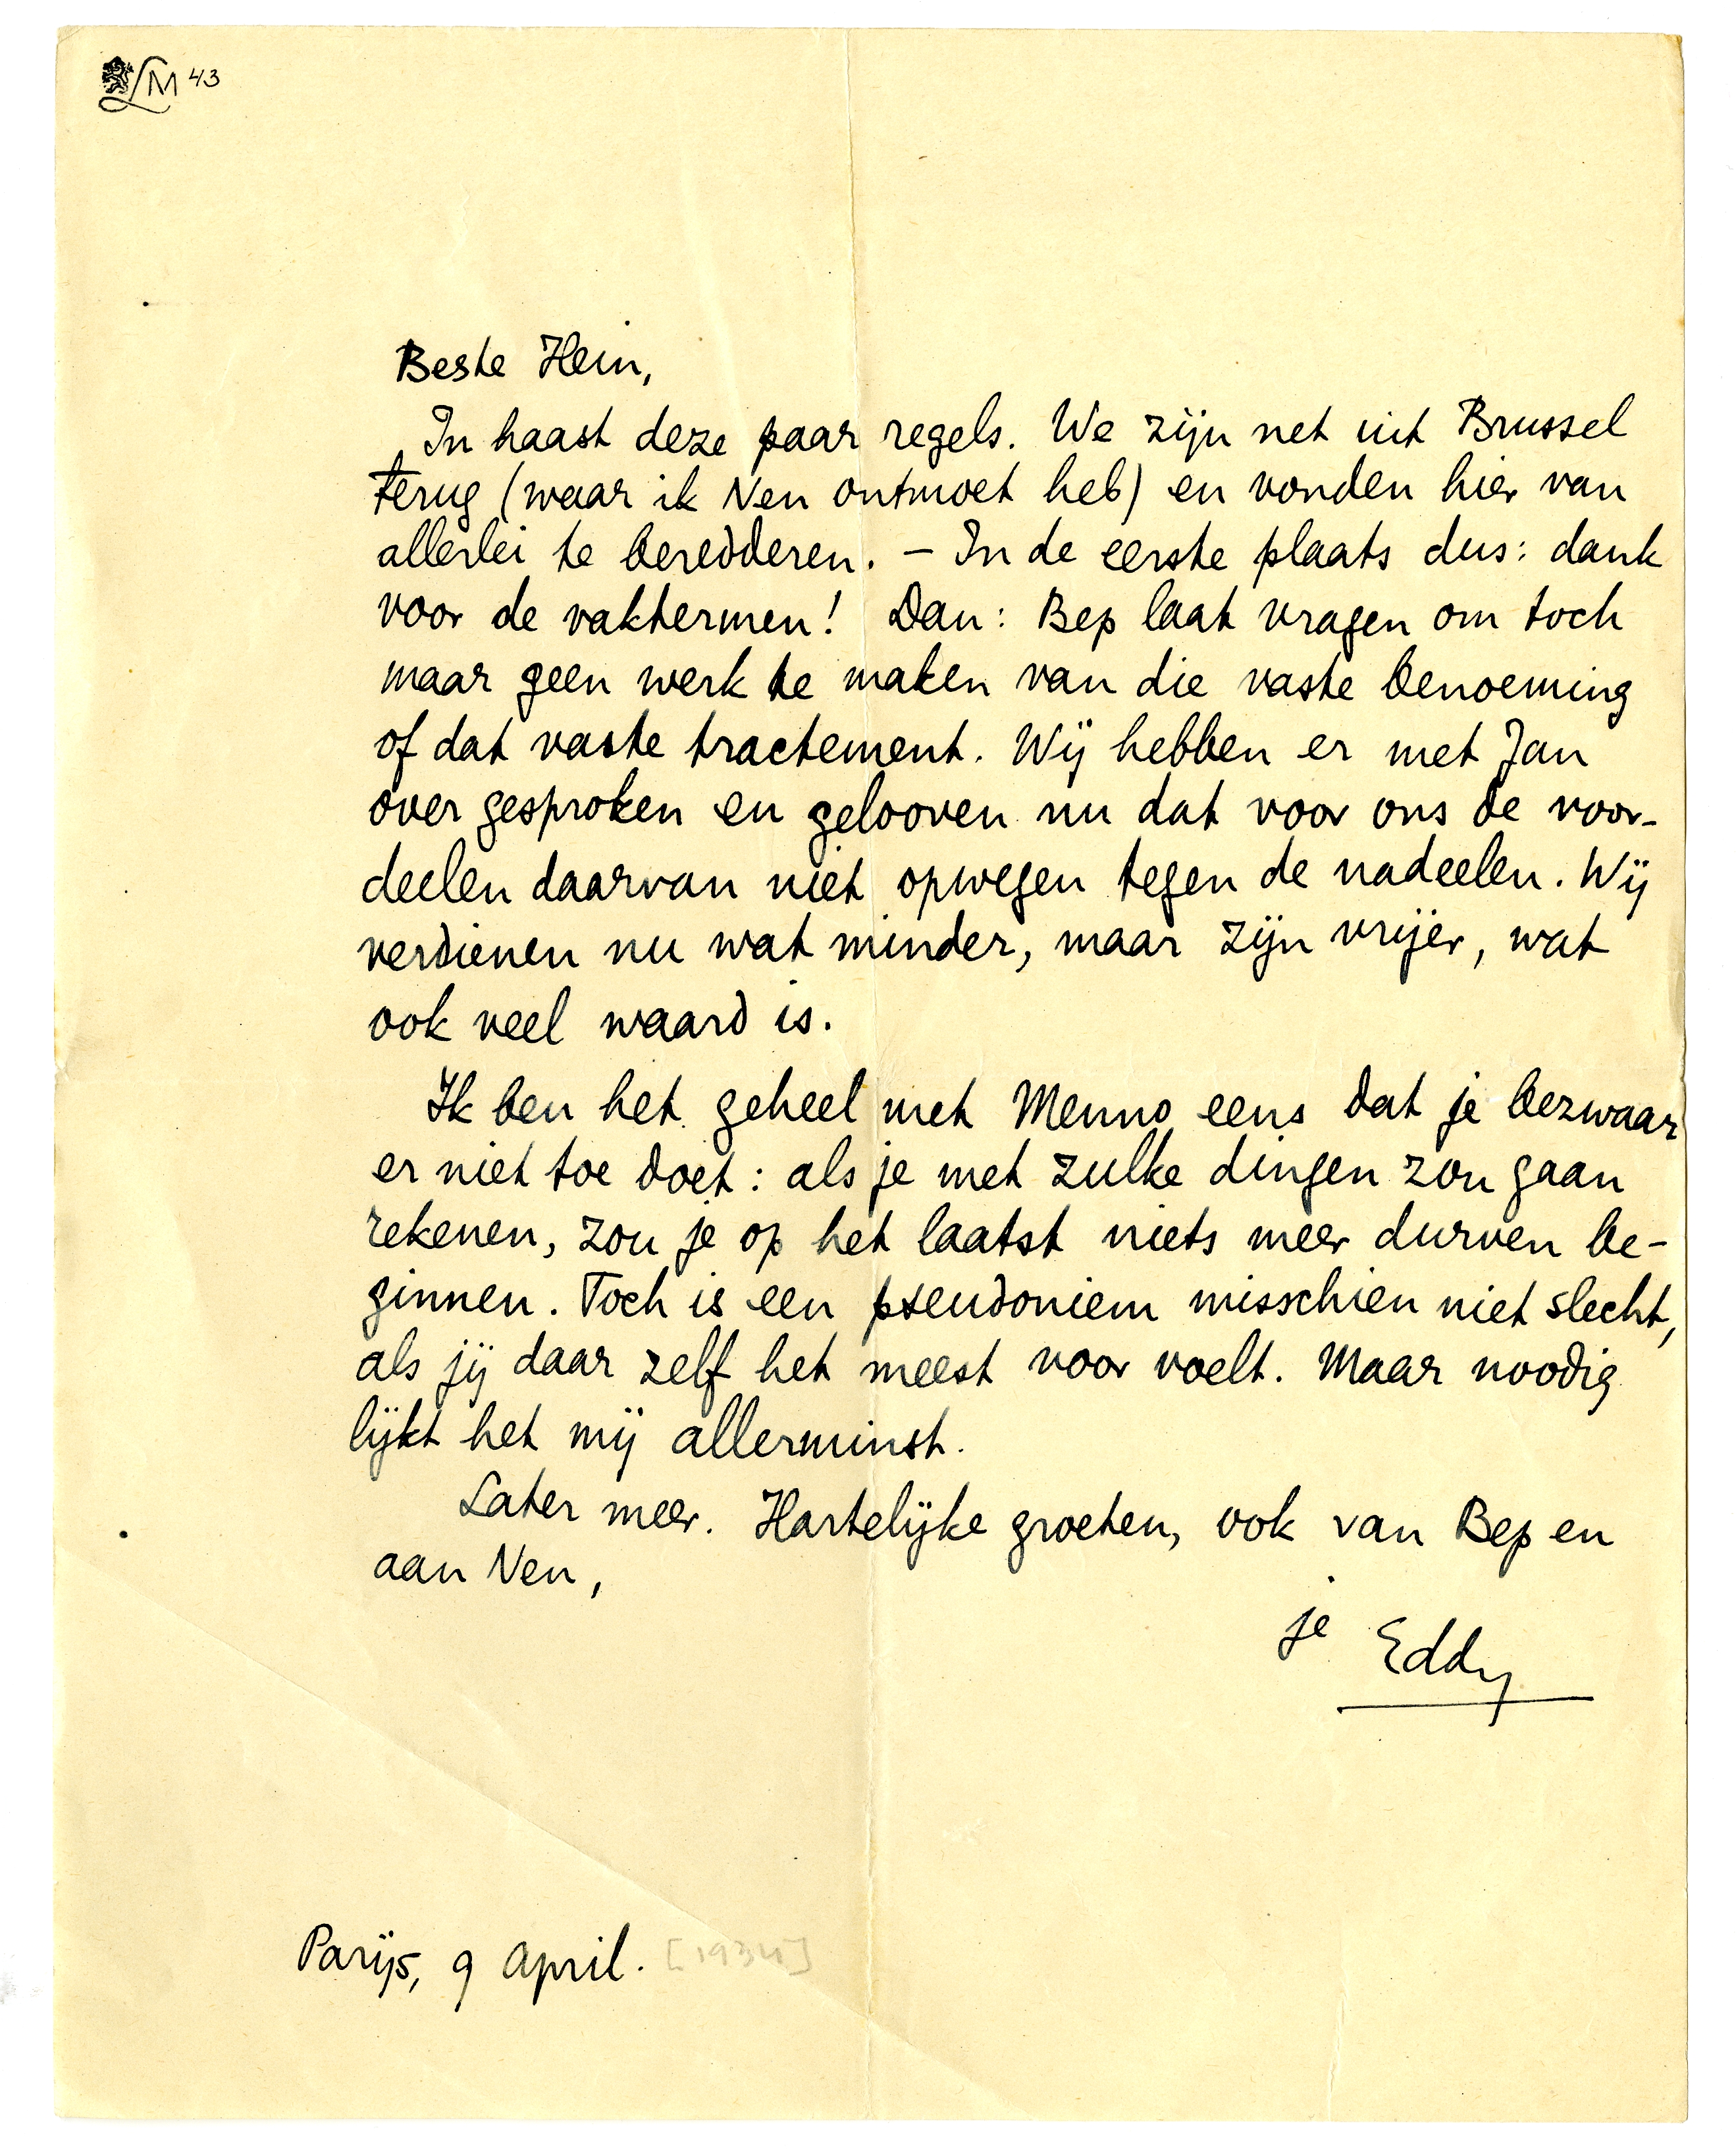 LM 43
Beste Hein,
In haast deze paar regels. We zijn net uit Brussel
terug (waar ik Ven ontmoet heb) en vonden hier van
allerlei te beredderen. – In de eerste plaats dus: dank
voor de vaktermen! Dan: Bep laat vragen om toch
maar geen werk te maken van die vaste benoeming
of dat vaste tractement. Wij hebben er met Jan
over gesproken en gelooven nu dat voor ons de voor-
deelen daarvan niet opwegen tegen de nadeelen. Wij
verdienen nu wat minder, maar zijn vrijer, wat
ook veel waard is.
Ik ben het geheel met Menno eens dat je bezwaar
er niet toe doet: als je met zulke dingen zou gaan
rekenen, zou je op het laatst niets meer durven be-
ginnen. Toch is een pseudoniem misschien niet slecht,
als jij daar zelf het meest voor voelt. Maar noodig
lijkt het mij allerminst.
Later meer. Hartelijke groeten, ook van Bep en
aan Ven,
je Eddy
Parijs, 9 April. [1934]